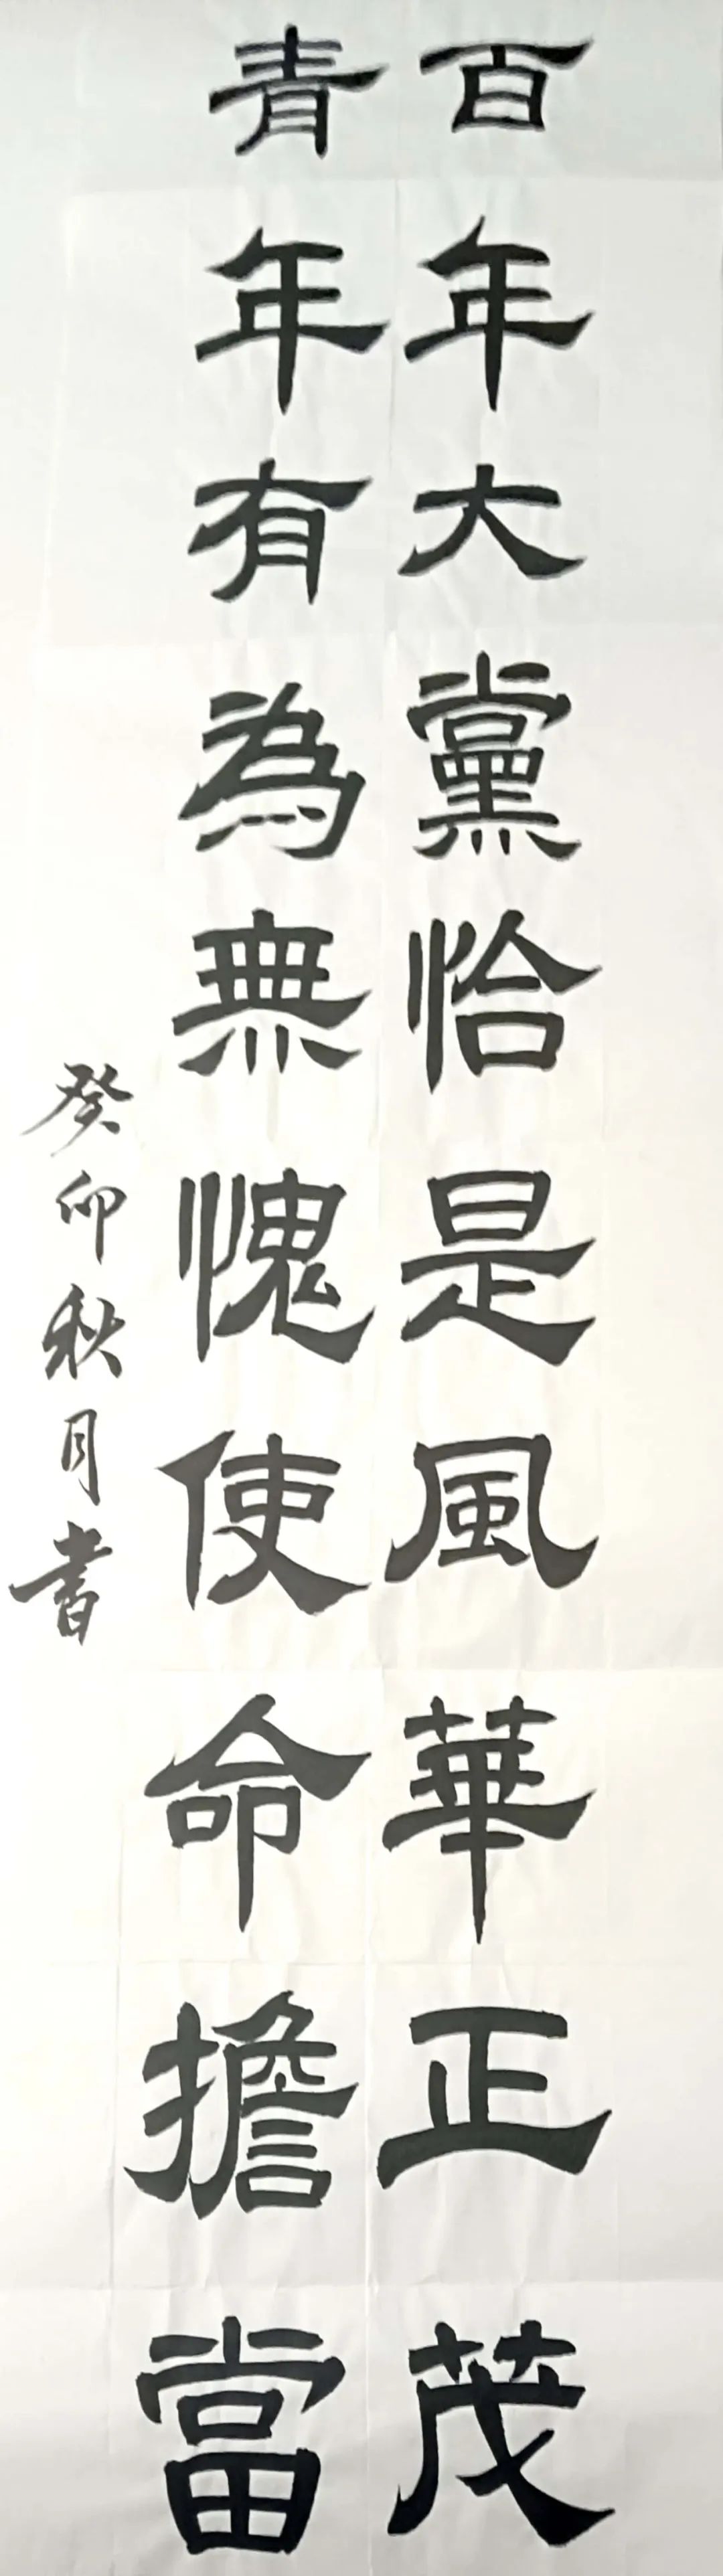 百年大黨恰是風華正茂
青年有為無愧使命擔當
癸卯秋月書